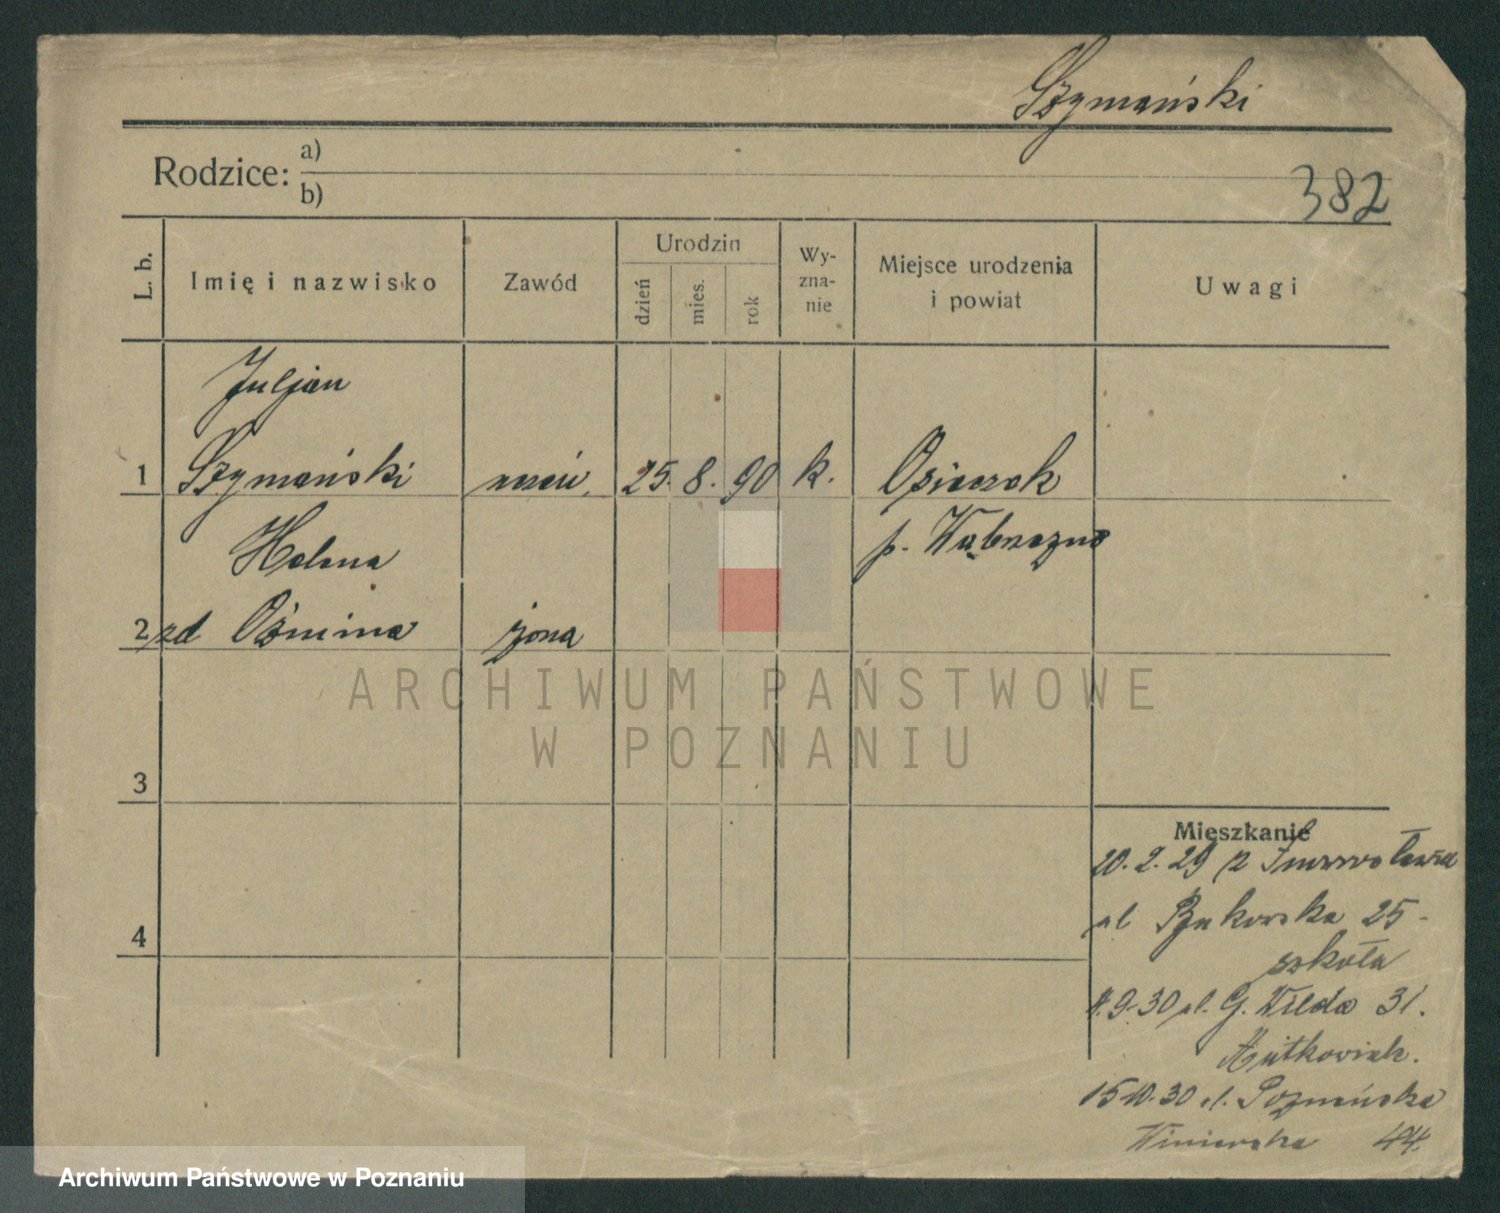 Szymański
Rodzice: a)
b)
382
L. b.
Imię i nazwisko
Zawód
Urodzin
dzień
mies.
rok
Wy-
zna-
nie
Miejsce urodzenia
i powiat
Uwagi
Juljan
1 Szymański 25. 8. 90 k. Osieczek
p. Wąbrzeźno
Helena
2 zd Ośmina żona
3
4
Mieszkanie
20. 2. 29 z Inowrocławia
ul Bukowska 25 -
szkoła
4. 9. 30 ul. G. Wilda 31.
15 10. 30 ul. Poznańska
44.
ARCHIWUM PAŃSTWOWE
W POZNANIU
Archiwum Państwowe w Poznaniu